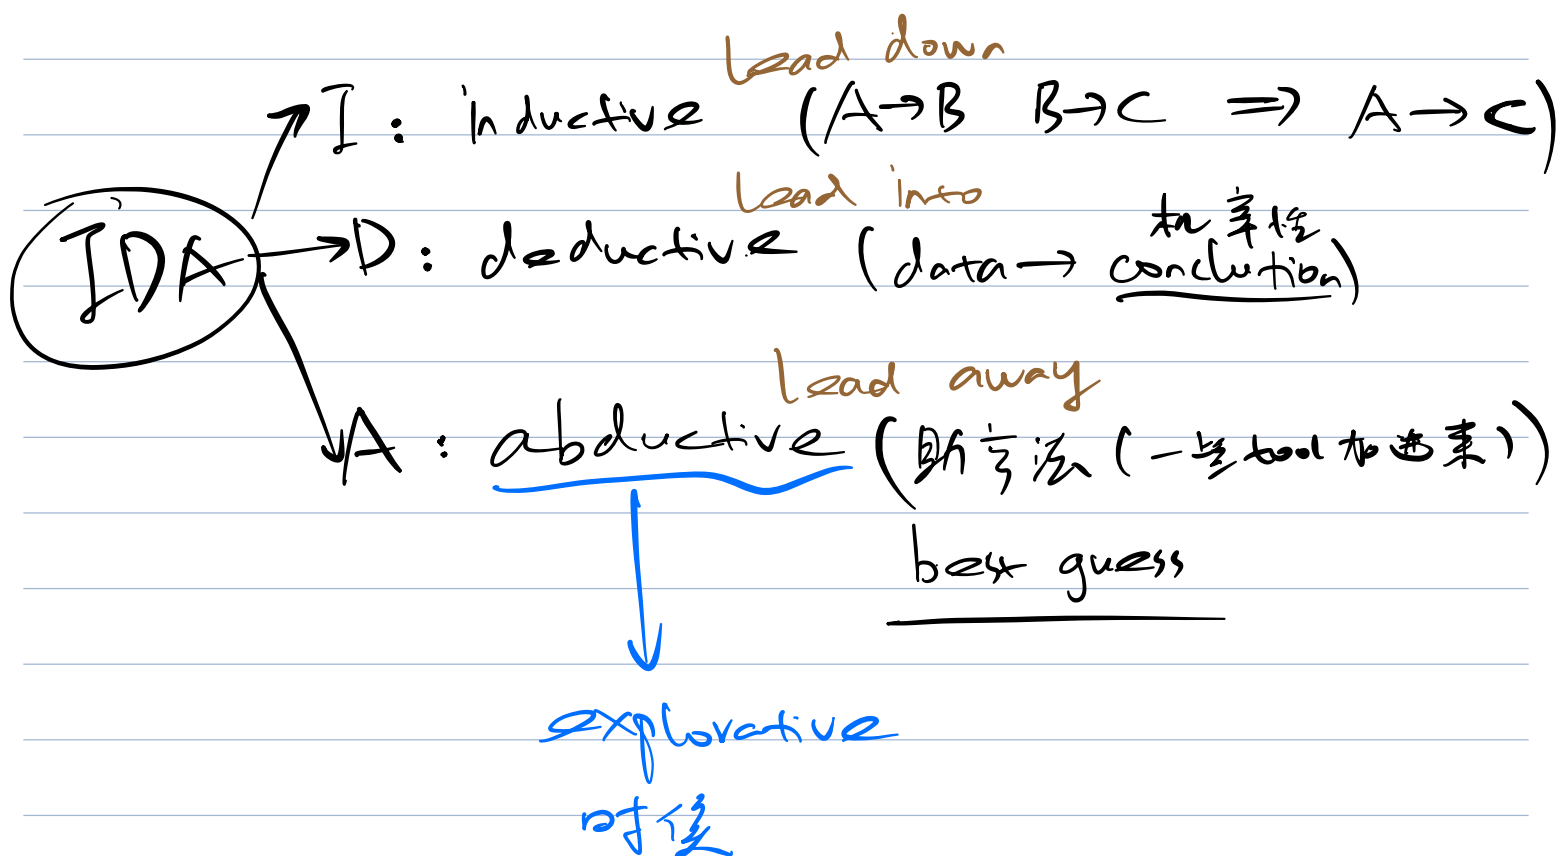 Lead down
I : inductive (A→B B→C ⇒ A→C)
Lead into
IDA
D : deductive (data → conclution)
机率性
Lead away
A : abductive (助产法 (一些tool加进来))
best guess
explorative
时候